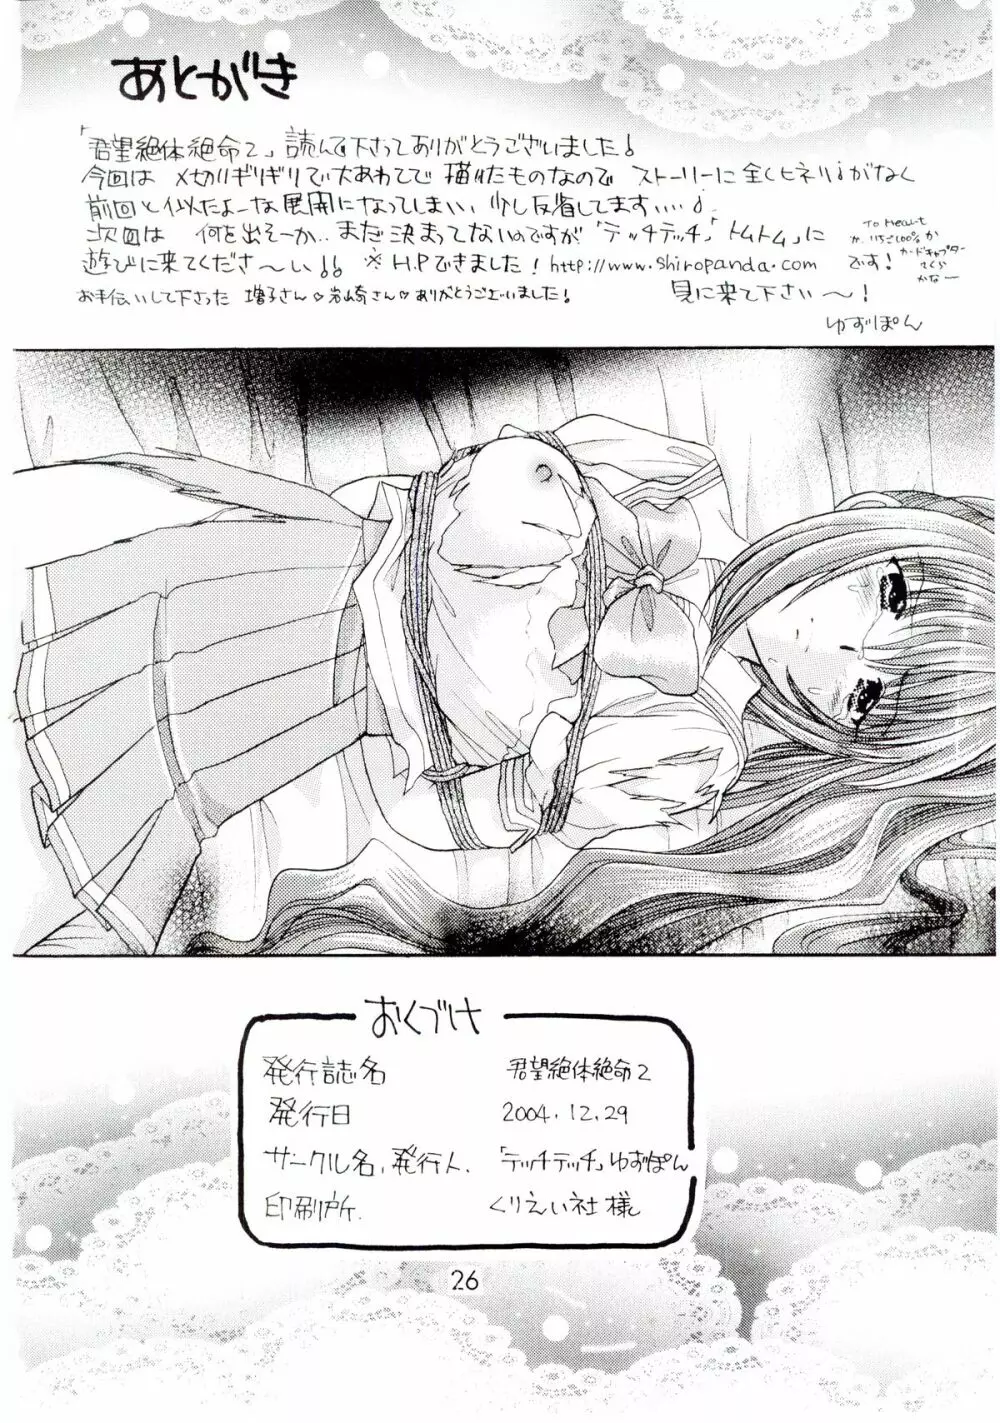 あとがき
「君望絶体絶命2」読んで下さってありがとうございました!
今回は〆切りギリギリで大あわてで描けたものなのでストーリーに全くヒネリがなく
前回と似たよーな展開になってしまい、少し反省してます….
次回は何を出そーか..まだ決まってないのですが「テッチテッチ」「トムトム」に
To Heart
か、いちご100%か
カードキャプター
さくら
かな〜
遊びに来てくださ〜い!! ※H.Pできました!http://www.shiropanda.com です!
お手伝いして下さった 増子さん♡岩崎さん♡ありがとうございました!
見に来て下さい〜!
ゆずぽん
おくづけ
発行誌名 君望絶体絶命2
発行日 2004.12.29
サークル名,発行人. 「テッチテッチ」ゆずぽん
印刷所. くりえい社様
26